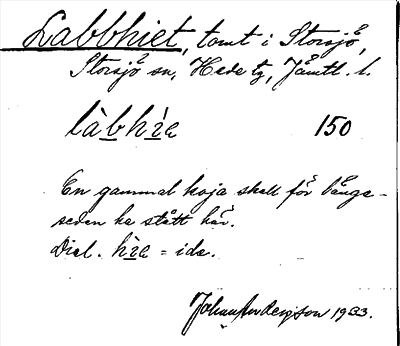 Labbhiet, tomt i Storsjö,
Storsjö sn, Hede tg, Jämtl. l.
làbhìe 150
En gammal koja skall för länge-
sedan ha stått här.
Dial. hìe = ide.
Johan Andersson 1933.